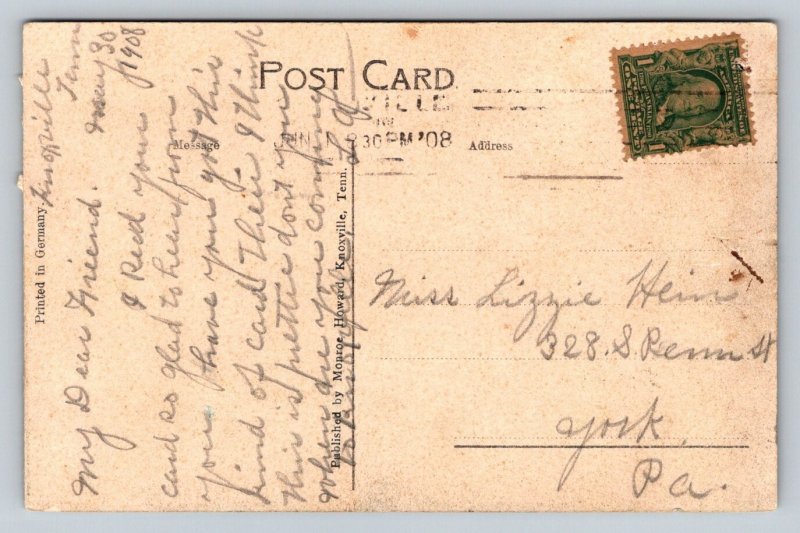 POST CARD
Message
Address
VILLE
JUN 1 830 PM '08
Printed in Germany.
Published by Monroe Howard, Knoxville, Tenn.
Knoxville
Tenn
May 30
1908
My Dear Friend.
I Recd your
card so glad to hear from
you have you got this
kind of card there I think
this is prettie dont you
when are you coming
to Knoxville
Miss Lizzie Hein
328. S. Penn St
York,
Pa.
1
1